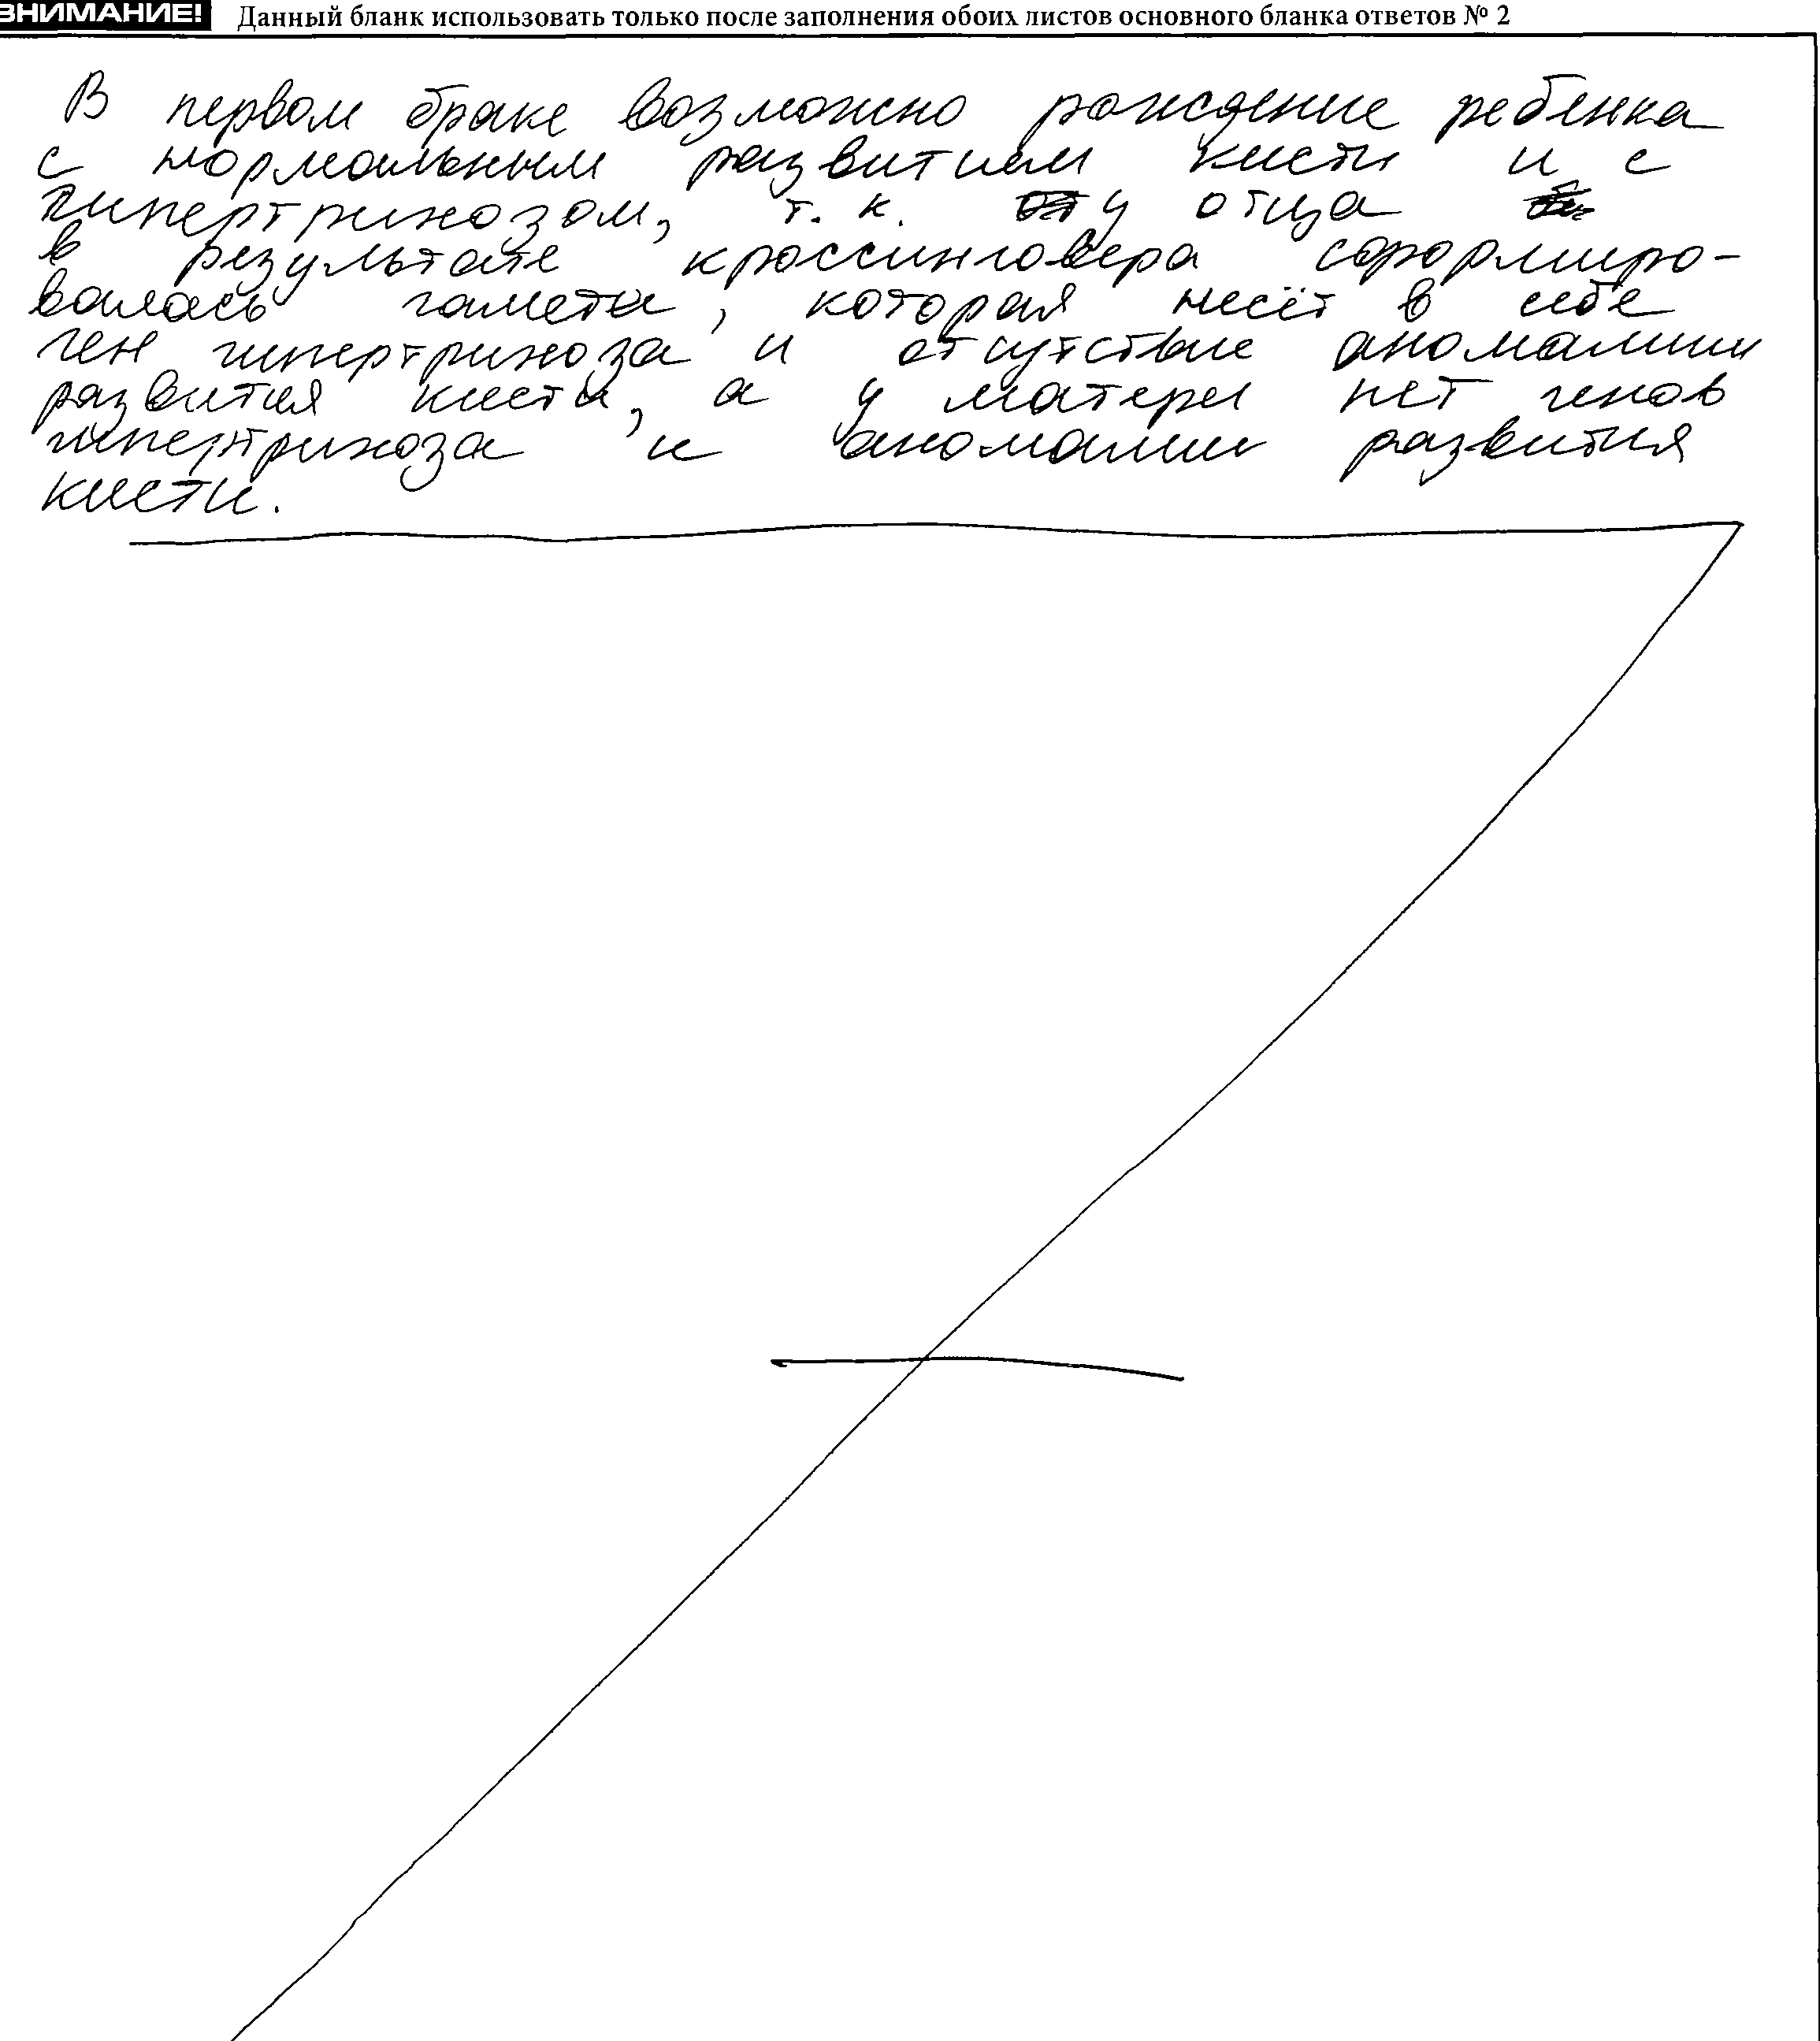 ВНИМАНИЕ! Данный бланк использовать только после заполнения обоих листов основного бланка ответов № 2
В первом браке возможно рождение ребенка
с нормальным развитием кисти и с
гипертрихозом, т.к. у отца
в результате кроссинговера сформиро-
валась гамета, которая несёт в себе
ген гипертрихоза и отсутствие аномалии
развития кисти, а у матери нет генов
гипертрихоза и аномалии развития
кисти.